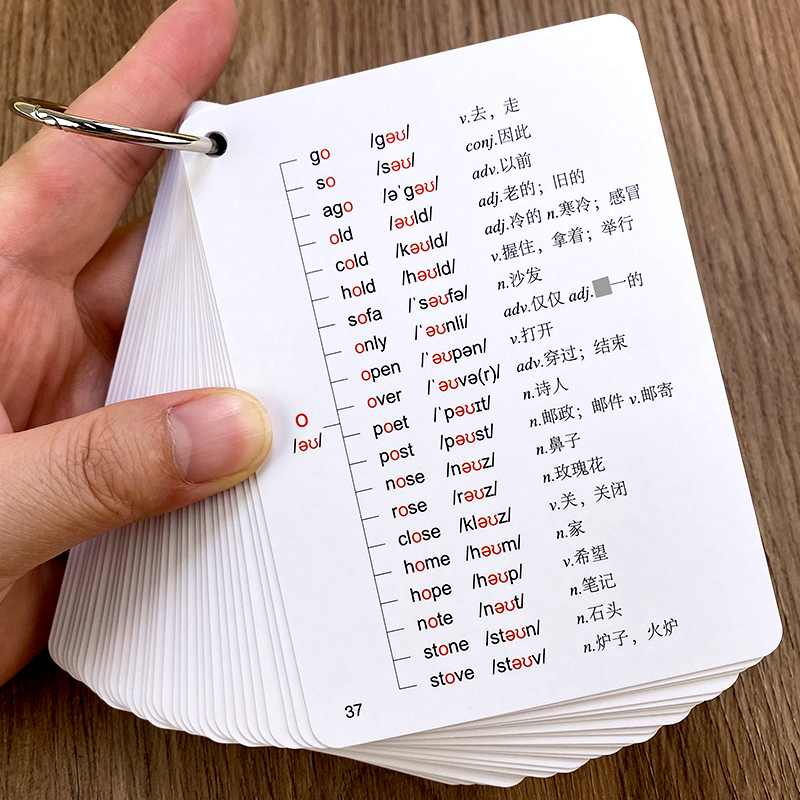 go /gəʊ/ v.去，走
so /səʊ/ conj.因此
ago /əˈgəʊ/ adv.以前
old /əʊld/ adj.老的；旧的
cold /kəʊld/ adj.冷的 n.寒冷；感冒
hold /həʊld/ v.握住，拿着；举行
sofa /ˈsəʊfə/ n.沙发
only /ˈəʊnli/ adv.仅仅 adj.一的
open /ˈəʊpən/ v.打开
over /ˈəʊvə(r)/ adv.穿过；结束
o
/əʊ/
poet /ˈpəʊɪt/ n.诗人
post /pəʊst/ n.邮政；邮件 v.邮寄
nose /nəʊz/ n.鼻子
rose /rəʊz/ n.玫瑰花
close /kləʊz/ v.关，关闭
home /həʊm/ n.家
hope /həʊp/ v.希望
note /nəʊt/ n.笔记
stone /stəʊn/ n.石头
stove /stəʊv/ n.炉子，火炉
37